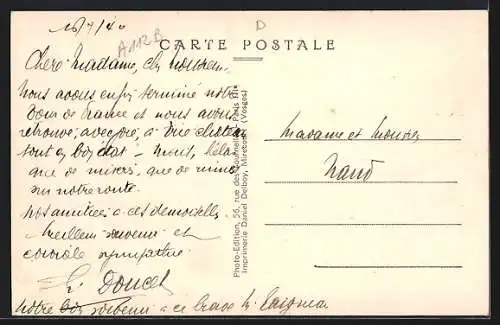 16/7/40
A112B
D
CARTE POSTALE
Chère Madame, cher Monsieur,
Nous avons enfin terminé notre
Tour de France et nous avons
retrouvé, avec joie, à
tout en bon état —
que de misère, que de ruines
sur notre route.
Nos amitiés à ces demoiselles
Meilleur souvenir et
cordiale sympathie
Doucet
Notre bon souvenir à ce brave M.
Photo-Edition, 56, rue des Tournelles, Paris III
Imprimerie Daniel Delboy, Mirecourt (Vosges)
Madame et Monsieur